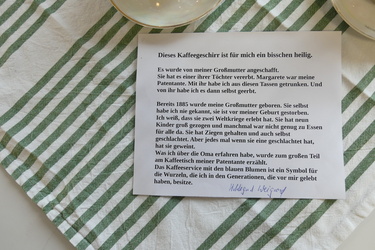 Dieses Kaffeegeschirr ist für mich ein bisschen heilig.
Es wurde von meiner Großmutter angeschafft.
Sie hat es einer ihrer Töchter vererbt. Margarete war meine
Patentante. Mit ihr habe ich aus diesen Tassen getrunken. Und
von ihr habe ich es dann selbst geerbt.
Bereits 1885 wurde meine Großmutter geboren. Sie selbst
habe ich nie gekannt, sie ist vor meiner Geburt gestorben.
Ich weiß, dass sie zwei Weltkriege erlebt hat. Sie hat neun
Kinder groß gezogen und manchmal war nicht genug zu Essen
für alle da. Sie hat Ziegen gehalten und auch selbst
geschlachtet. Aber jedes mal wenn sie eine geschlachtet hat,
hat sie geweint.
Was ich über die Oma erfahren habe, wurde zum großen Teil
am Kaffeetisch meiner Patentante erzählt.
Das Kaffeeservice mit den blauen Blumen ist ein Symbol für
die Wurzeln, die ich in den Generationen, die vor mir gelebt
haben, besitze.
Hildegard